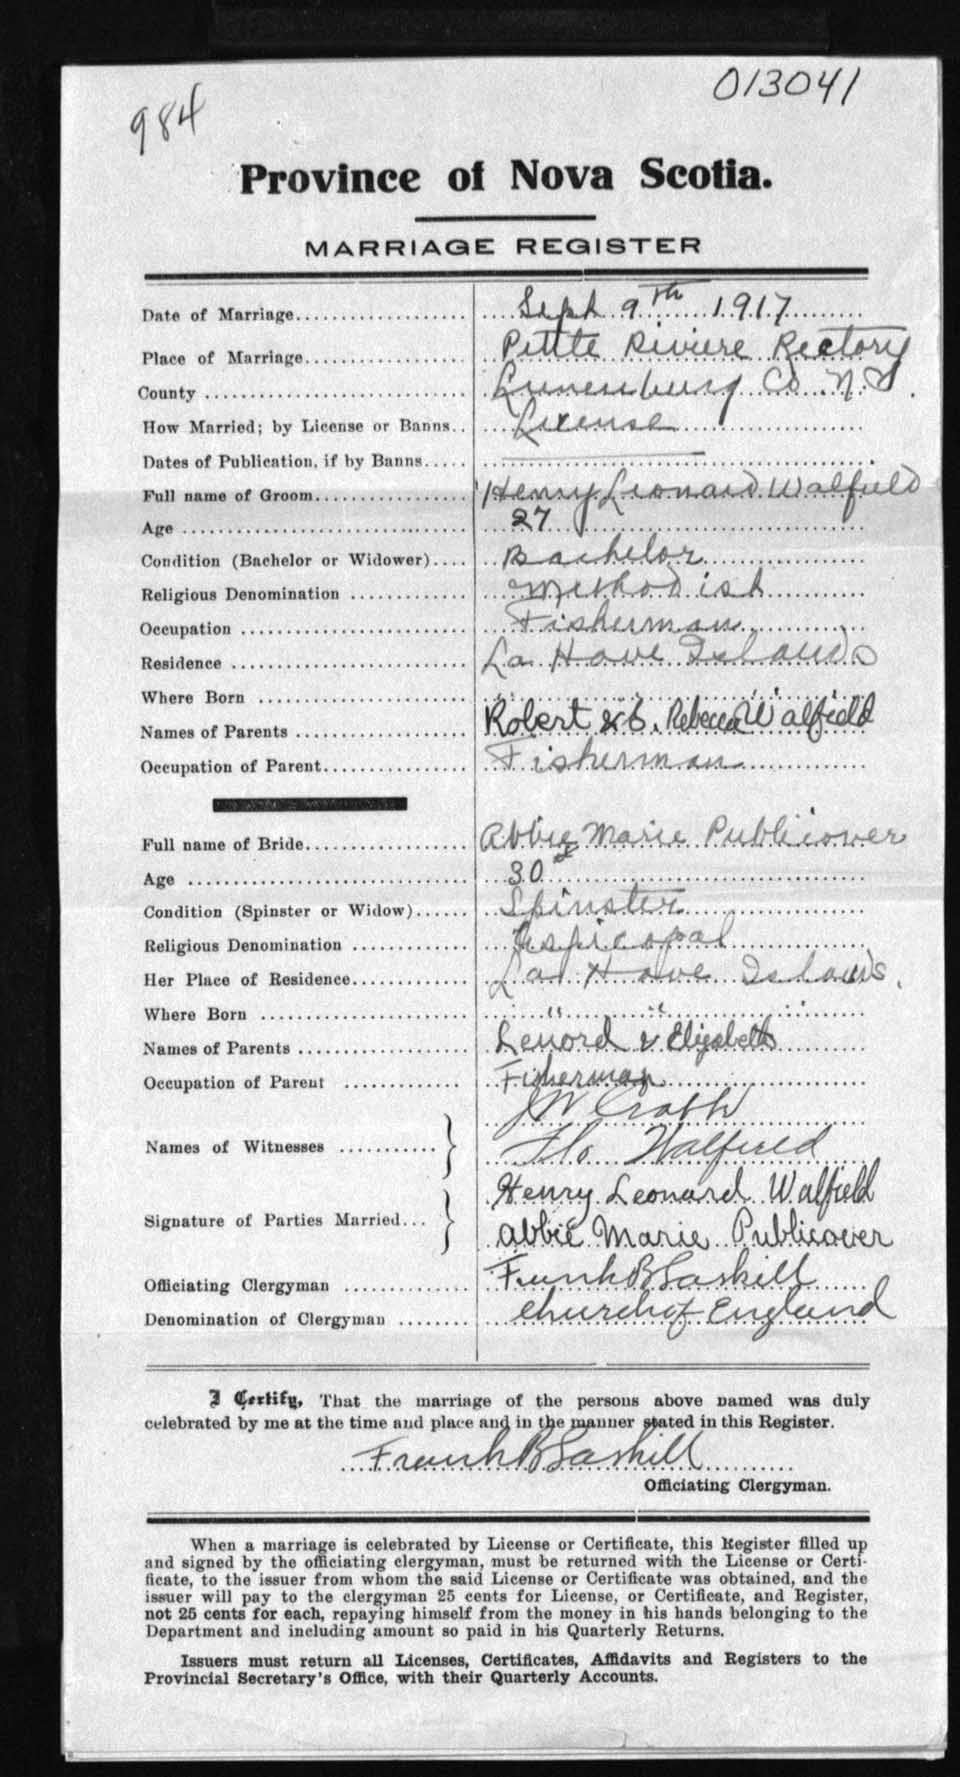 984
013041
Province of Nova Scotia.
MARRIAGE REGISTER
Date of Marriage Sept 9th 1917
Place of Marriage Petite Riviere Rectory
County Lunenburg Co N.S.
How Married; by License or Banns License
Dates of Publication, if by Banns
Full name of Groom Henry Leonard Walfield
Age 27
Condition (Bachelor or Widower) Bachelor
Religious Denomination Methodist
Occupation Fisherman
Residence La Have Islands
Where Born " " "
Names of Parents Robert & Rebecca Walfield
Occupation of Parent Fisherman
Full name of Bride Abbie Marie Publicover
Age 30
Condition (Spinster or Widow) Spinster
Religious Denomination Espicopal
Her Place of Residence La Have Islands.
Where Born " " "
Names of Parents Lenord & Elizabeth
Occupation of Parent Fisherman
Names of Witnesses } J W
Flo Walfield
Signature of Parties Married } Henry Leonard Walfield
Abbie Marie Publicover
Officiating Clergyman Frank B Gaskill
Denomination of Clergyman Church of England
I Certify, That the marriage of the persons above named was duly
celebrated by me at the time and place and in the manner stated in this Register.
Frank B Gaskill
Officiating Clergyman.
When a marriage is celebrated by License or Certificate, this Register filled up
and signed by the officiating clergyman, must be returned with the License or Certi-
ficate, to the issuer from whom the said License or Certificate was obtained, and the
issuer will pay to the clergyman 25 cents for License, or Certificate, and Register,
not 25 cents for each, repaying himself from the money in his hands belonging to the
Department and including amount so paid in his Quarterly Returns.
Issuers must return all Licenses, Certificates, Affidavits and Registers to the
Provincial Secretary's Office, with their Quarterly Accounts.